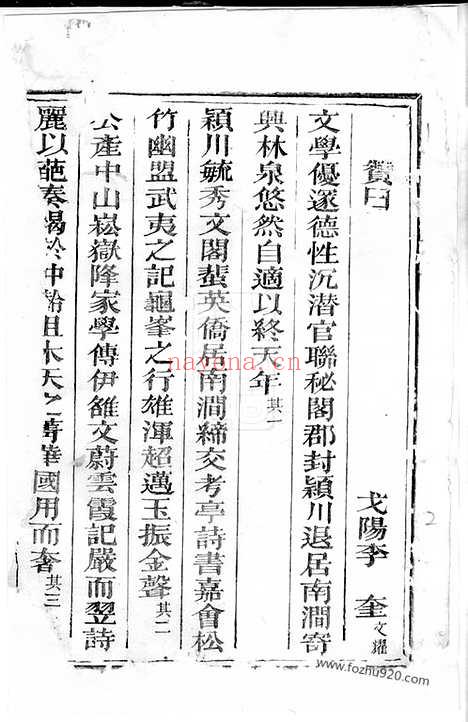 贊曰
弋陽李 奎文耀
文學優邃德性沉潛官聯秘閣郡封潁川退居南澗寄
興林泉悠然自適以終天年其一
潁川毓秀文閣蜚英僑居南澗締交考亭詩書嘉會松
竹幽盟武夷之記龜峯之行雄渾超邁玉振金聲其二
公產中山崧嶽降家學傳伊雒文蔚雲霞記嚴而翌詩
麗以葩奏 中 且木天之 華國用而奢其三
2
nayona.cn
www.fozhu920.com